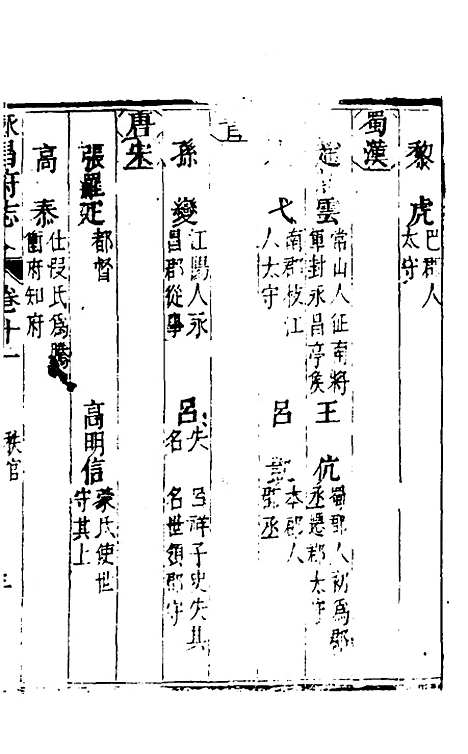 黎虎 巴郡人太守
蜀漢
雲 常山人征南將軍封永昌亭侯
王伉 蜀郡人初為郡丞遷郡太守
弋 南郡枝江人太守
呂 本郡人郡丞
孫燮 江陽人永昌郡從事
呂 失名 呂祥子史失其名世領郡守
唐宋
張羅疋 都督
高明信 蒙氏使世守其土
高泰 仕段氏為騰衝府知府
永昌府志 卷十一 秩官 三